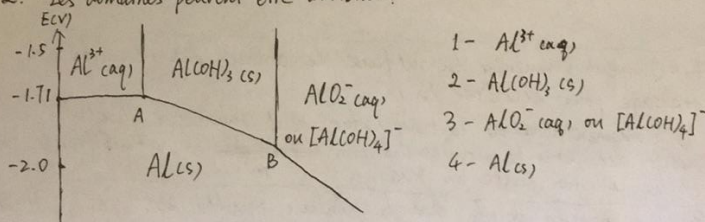 E(V)
-1.5
Al³⁺(aq)
Al(OH)₃(s)
AlO₂⁻(aq)
ou [Al(OH)₄]⁻
-1.71
A
B
-2.0
Al(s)
1- Al³⁺(aq)
2- Al(OH)₃(s)
3- AlO₂⁻(aq) ou [Al(OH)₄]⁻
4- Al(s)